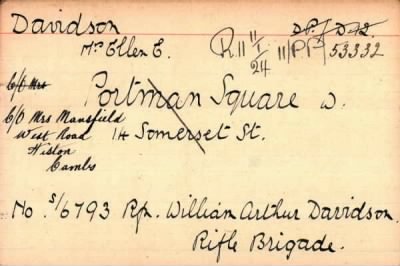 Davidson
Mrs Ellen E.
R11 11/1/24 11/PP/53332
D.P./D
c/o Mrs
Portman Square W.
c/o Mrs Mansfield
West Road
Histon
Cambs
14 Somerset St.
No. S/6793 Rfn. William Arthur Davidson
Rifle Brigade.